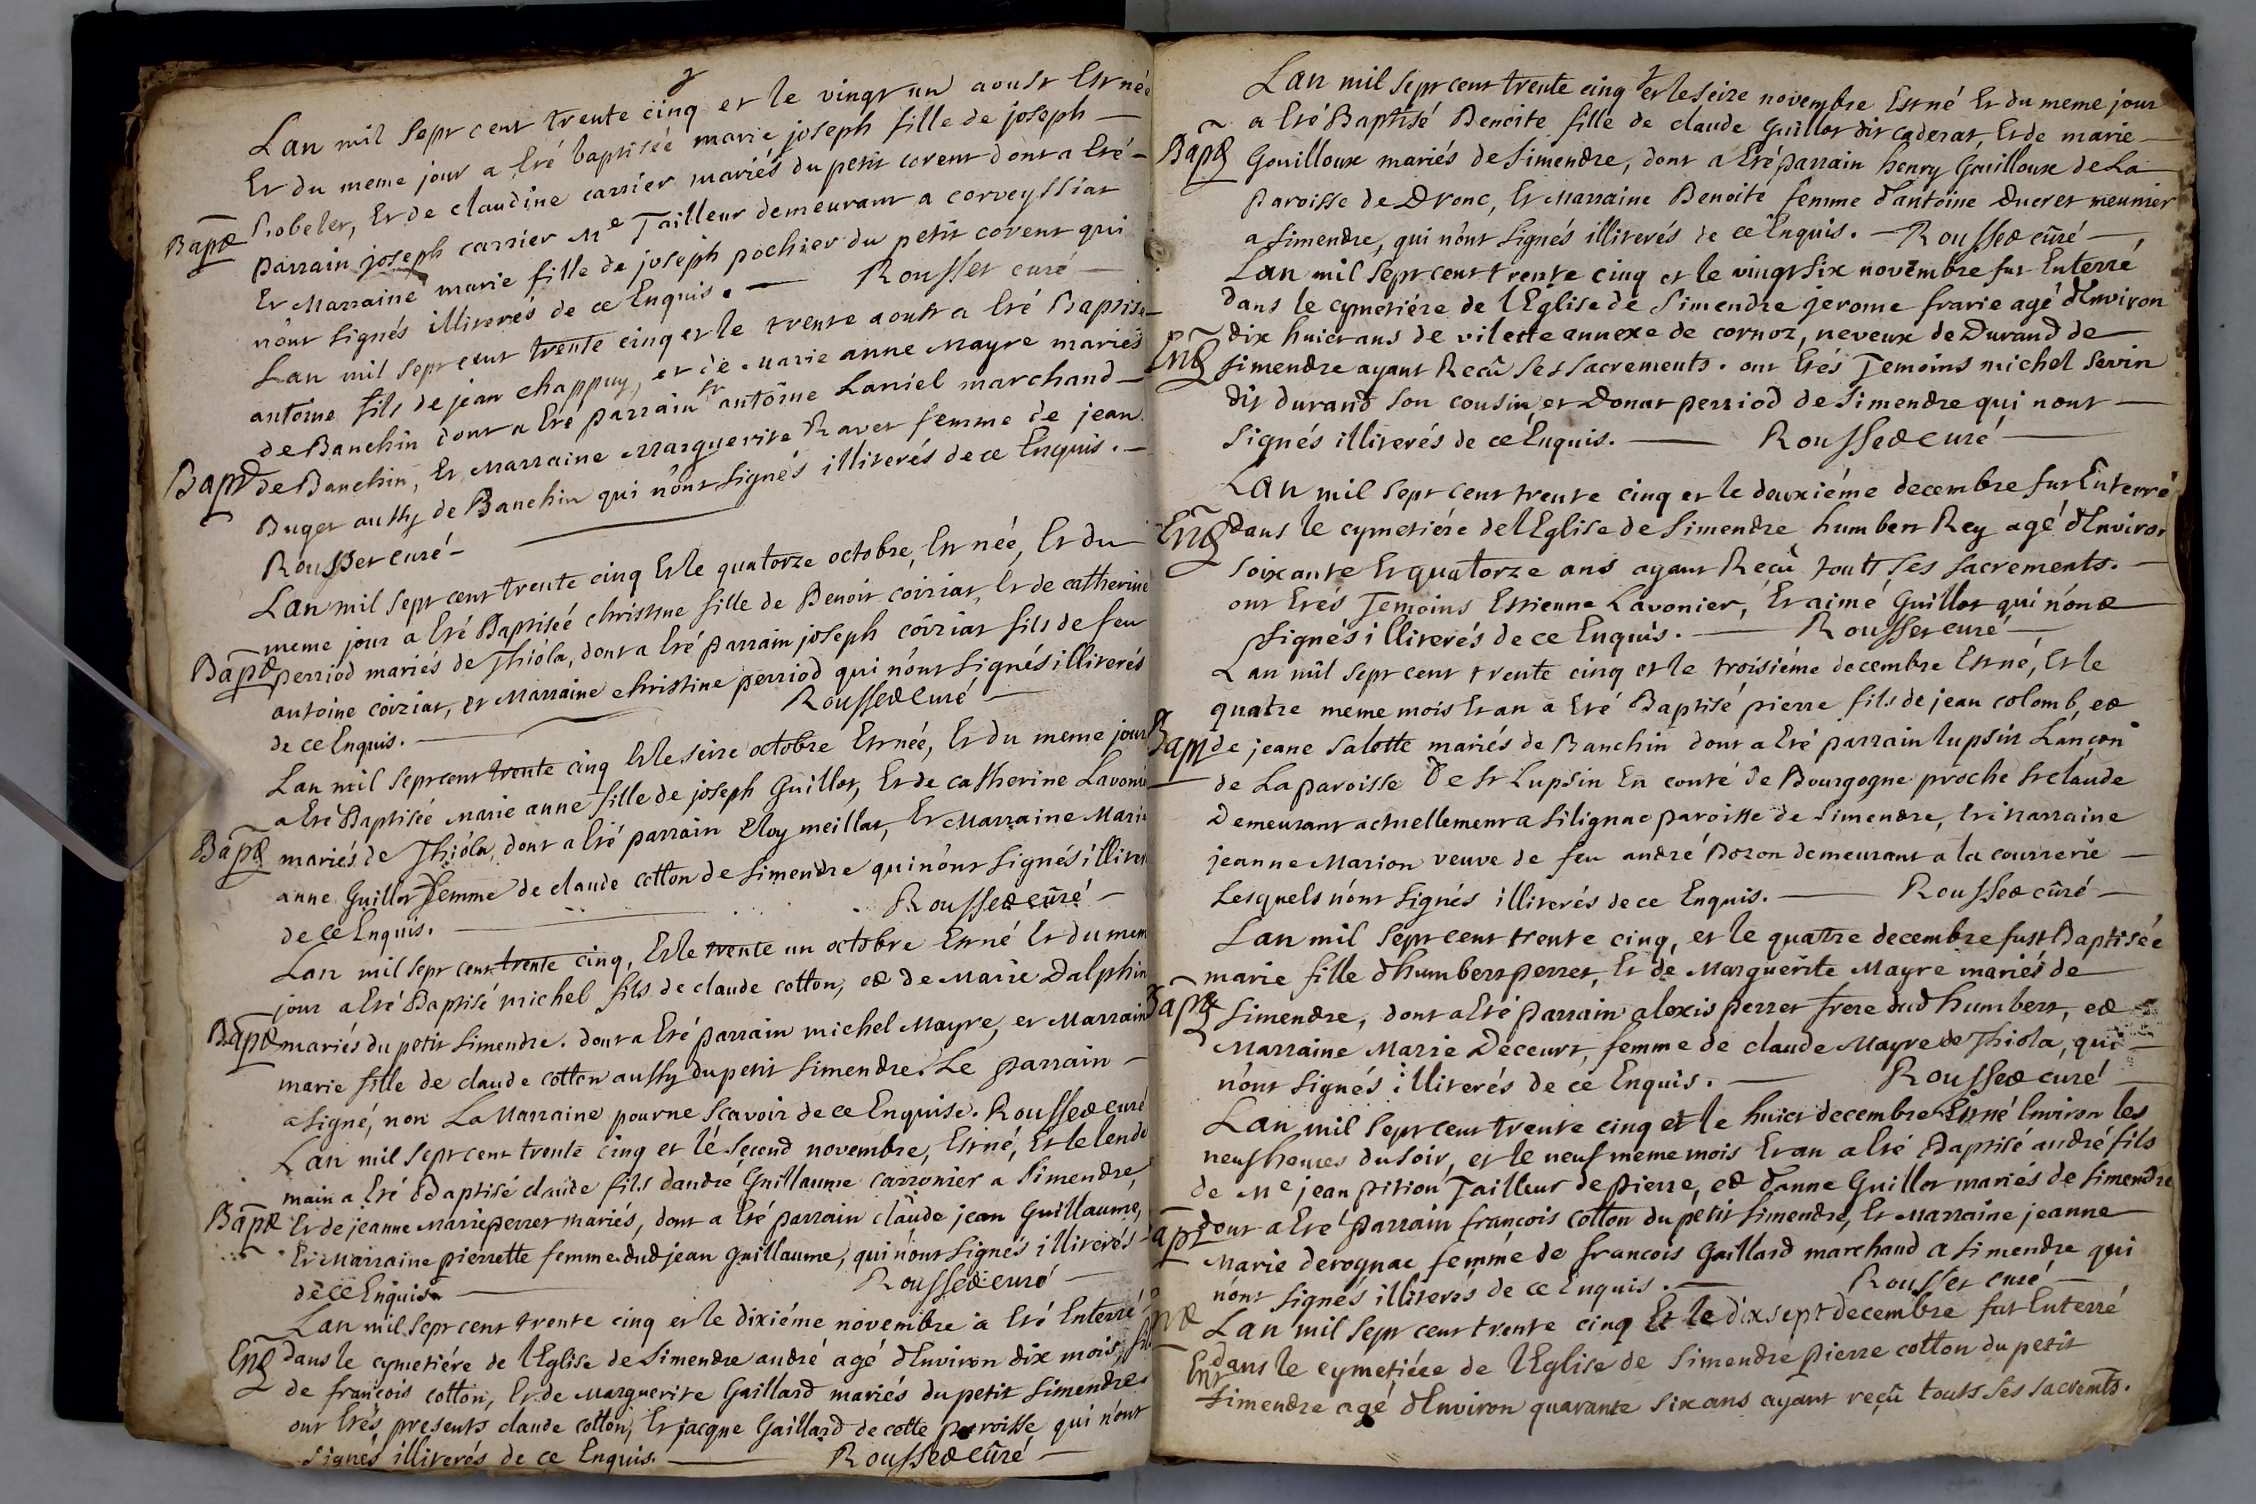 Lan mil sept cent trente cinq et le vingt un aoust Est née
Et du meme jour a Eté baptiséé marie joseph fille de joseph
Robelet, Et de claudine carrier mariés du petit corent dont a Eté
Bapt
parrain joseph carrier Me Tailleur demeurant a corveyssiat
Et Marraine marie fille de joseph pochier du petit corent qui
nont signés illiterés de ce Enquis. Rousset curé
Lan mil sept cent trente cinq et le trente aoust a Eté Baptisé
antoine fils de jean chappuy, et de Marie anne Mayre mariés
de Banchin dont a Eté parrain sr antoine Laniel marchand
Bapt de Banchin, Et Marraine Marguerite Ravet femme de jean
Buget aussy de Banchin qui nont signés illiterés de ce Enquis.
Rousset curé
Lan mil sept cent trente cinq Et le quatorze octobre, Est néé, Et du
meme jour a Eté Baptiséé christine fille de Benoit coiziat, Et de catherine
Bapt perriod mariés de Thiola, dont a Eté parrain joseph coiziat fils de feu
antoine coiziat, et Marraine christine perriod qui nont signés illiterés
de ce Enquis. Rousset curé
Lan mil sept cent trente cinq Et le seize octobre Est néé, Et du meme jour
a Eté Baptiséé Marie anne fille de joseph Guillot, Et de catherine Lavonie
Bapt mariés de Thiola, dont a Eté parrain Eloy meillat, Et Marraine Marie
anne Guillot femme de claude cotton de Simendre qui nont signés illiter
de ce Enquis. Rousset curé
Lan mil sept cent trente cinq, Et le trente un octobre Est né Et du mem
jour a Eté Baptisé michel fils de claude cotton, et de Marie Dalphin
Bapt mariés du petit Simendre. dont a Eté parrain michel Mayre, et Marraine
marie fille de claude cotton aussy du petit Simendre. Le parrain
a signé, non La Marraine pour ne sçavoir de ce Enquise. Rousset curé
Lan mil sept cent trente cinq et le second novembre, Est né, Et le lende
main a Eté Baptisé claude fils dandré Guillaume carronier a Simendre,
Bapt Et de jeanne Marie perret mariés, dont a Eté parrain claude jean Guillaume,
Et Marraine pierrette femme dud jean Guillaume, qui nont signés illiterés
de ce Enquis. Rousset curé
Lan mil sept cent trente cinq et le dixiéme novembre a Eté Enterré
Ent dans le cymetiére de lEglise de Simendre andré agé dEnviron dix mois, fils
de francois cotton, Et de Marguerite Gaillard mariés du petit Simendre
ont Etés presents claude cotton, Et jacque Gaillard de cette paroisse qui nont
signés illiterés de ce Enquis. Rousset curé
Lan mil sept cent trente cinq et le seize novembre Est né Et du meme jour
a Eté Baptisé Benoite fille de claude Guillot dit caderat, Et de marie
Bapt Gouilloux mariés de Simendre, dont a Eté parrain henry Gouilloux de La
paroisse de Drom, Et Marraine Benoite femme dantoine Ducret meunier
a Simendre, qui nont signés illiterés de ce Enquis. Rousset curé
Lan mil sept cent trente cinq et le vingt six novembre fut Enterré
dans le cymetiére de lEglise de Simendre jerome frarie agé dEnviron
Ent dix huict ans de vilette annexe de cornoz, neveux de Durand de
Simendre ayant Reçû ses sacrements. ont Etés Temoins michel Sevin
dit durand son cousin, et Donat perriod de Simendre qui nont
signés illiterés de ce Enquis. Rousset curé
Lan mil sept cent trente cinq et le deuxiéme decembre fut Enterré
Ent dans le cymetiére de lEglise de Simendre humbert Rey agé dEnviron
soixante Et quatorze ans ayant Reçû touts ses sacrements.
ont Etés Temoins Estienne Lavonier, Et aimé Guillot qui nont
signés illiterés de ce Enquis. Rousset curé
Lan mil sept cent trente cinq et le troisiéme decembre Est né, Et le
quatre meme mois Et an a Eté Baptisé pierre fils de jean colomb, et
Bapt de jeane Salotte mariés de Banchin dont a Eté parrain lupsin Lançon
de La paroisse De st Lupsin En conté de Bourgogne proche st claude
Demeurant actuellement a Silignac paroisse de Simendre, Et Marraine
jeanne Marion veuve de feu andré Bozon demeurant a la courrerie
Lesquels nont signés illiterés de ce Enquis. Rousset curé
Lan mil sept cent trente cinq, et le quatre decembre fust Baptiséé
marie fille dhumbert perret, Et de Marguerite Mayre mariés de
Bapt Simendre, dont a Eté parrain alexis perret frere dud humbert, et
Marraine Marie Decourt, femme de claude Mayre de Thiola, qui
nont signés illiterés de ce Enquis. Rousset curé
Lan mil sept cent trente cinq et le huict decembre Est né Environ les
neuf heures du soir, et le neuf meme mois Et an a Eté Baptisé andré fils
de Me jean pition Tailleur de pierre, et danne Guillot mariés de Simendre
Bapt dont a Eté parrain francois cotton du petit Simendre, Et Marraine jeanne
Marie derognac femme de francois Gaillard marchand a Simendre qui
nont signés illiterés de ce Enquis. Rousset curé
Lan mil sept cent trente cinq Et le dix sept decembre fut Enterré
Ent dans le cymetiére de lEglise de Simendre pierre cotton du petit
Simendre agé dEnviron quarante six ans ayant reçû touts ses sacremts.